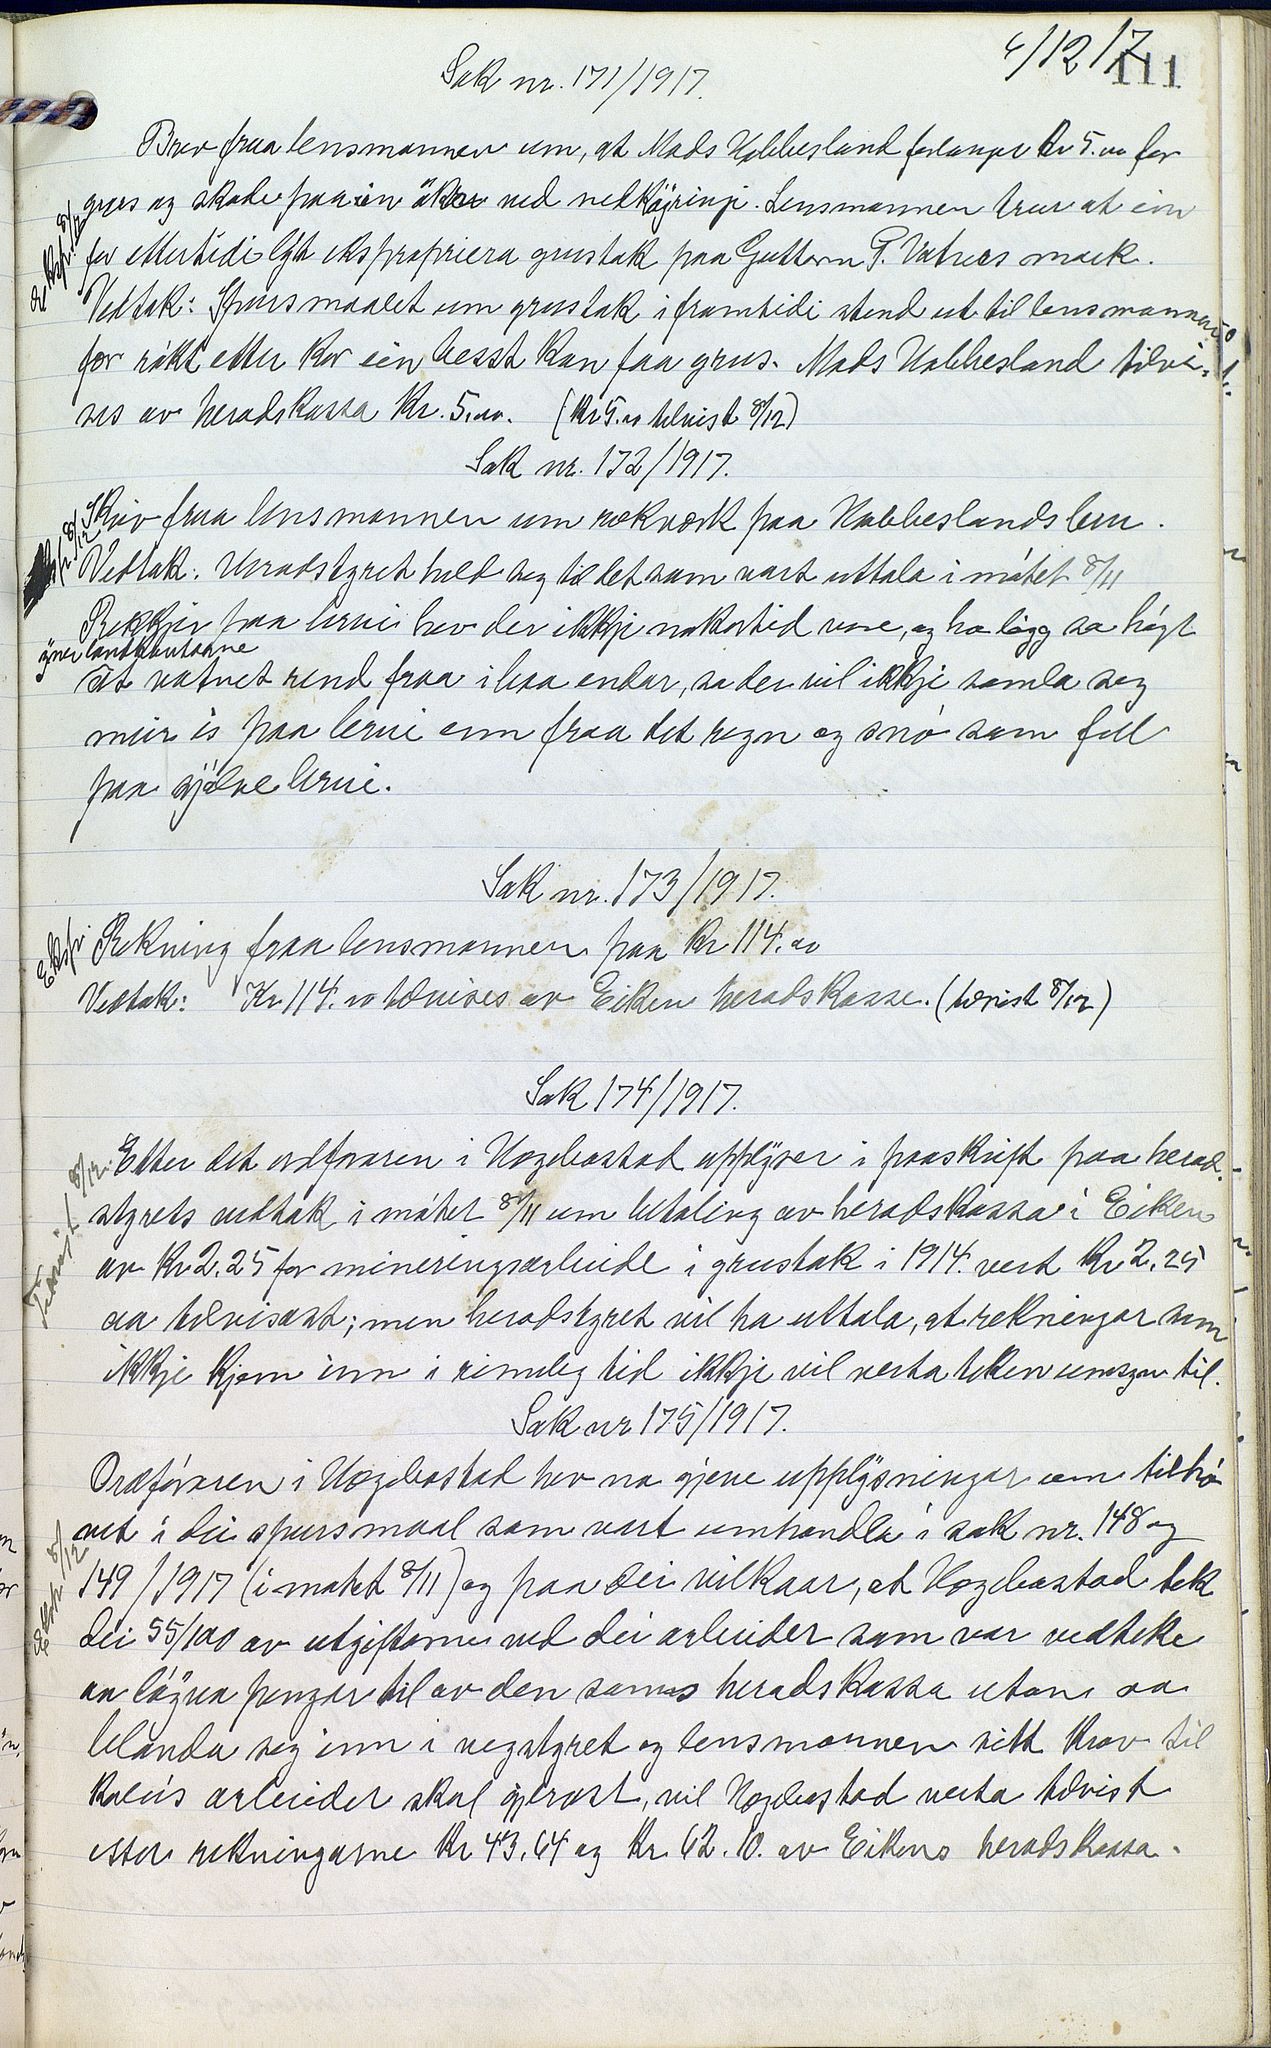 6/12 17
111
Sak nr. 171/1917.
Brev fraa lensmannen um, at Mads Ubbesland forlangar Kr 5.00 for
grus og skade paa ein åker ved nedkøyringi. Lensmannen trur at ein
for ettertidi lyt ekspropriera grustak paa Guttorm T. Vatnes mark.
Ekspr. 8/12
Vedtak: Spursmaalet um grustak i framtidi stend ut til lensmannen
før røkt etter kor ein best kan faa grus. Mads Ubbesland tilvi-
ses av heradskassa Kr. 5.00. (Kr 5.00 tilvist 8/12)
Sak nr. 172/1917.
Skriv fraa lensmannen um rekverk paa Ubbeslandsbrui.
8/12
Vedtak: Heradstyret held seg til det som vart uttala i møtet 8/11
Rekkjer paa brui hev der ikkje nokortid vore, og ho ligg so høgt
yver landkautarne
at vatnet rend fraa i baa endar, so der vil ikkje samla seg
meir is paa brui enn fraa det regn og snø som fell
paa sjølve brui.
Sak nr. 173/1917.
Ekspr.
Rekning fraa lensmannen paa Kr 114.00
Vedtak: Kr 114.00 tilvises av Eiken heradskasse. (tilvist 8/12)
Sak 174/1917.
Tilvist 8/12.
Etter det ordføraren i Hægebostad upplyser i paaskrift paa herad-
styrets vedtak i møtet 8/11 um betaling av heradskassa i Eiken
av Kr 2.25 for mineringsarbeide i grustak i 1914 vert Kr 2.25
aa tilvisast; men heradstyret vil ha uttala, at rekningar som
ikkje kjem inn i rimeleg tid ikkje vil verta teken umsyn til.
Sak nr 175/1917.
Ordføraren i Hægebostad hev no gjeve upplysningar um tilhø-
vet i dei spursmaal som vart umhandla i sak nr. 148 og
Ekspr 8/12
149/1917 (i møtet 8/11) og paa dei vilkaar, at Hægebostad tek
dei 55/100 av utgiftarne ved dei arbeider som var vedteke
aa løyva pengar til av den sams heradskassa utan aa
blanda seg inn i vegstyret og lensmannen sitt krav til
korleis arbeider skal gjerast, vil Hægebostad verta tilvist
etter rekningarne Kr 43.64 og Kr. 62.10. av Eikens heradskassa.